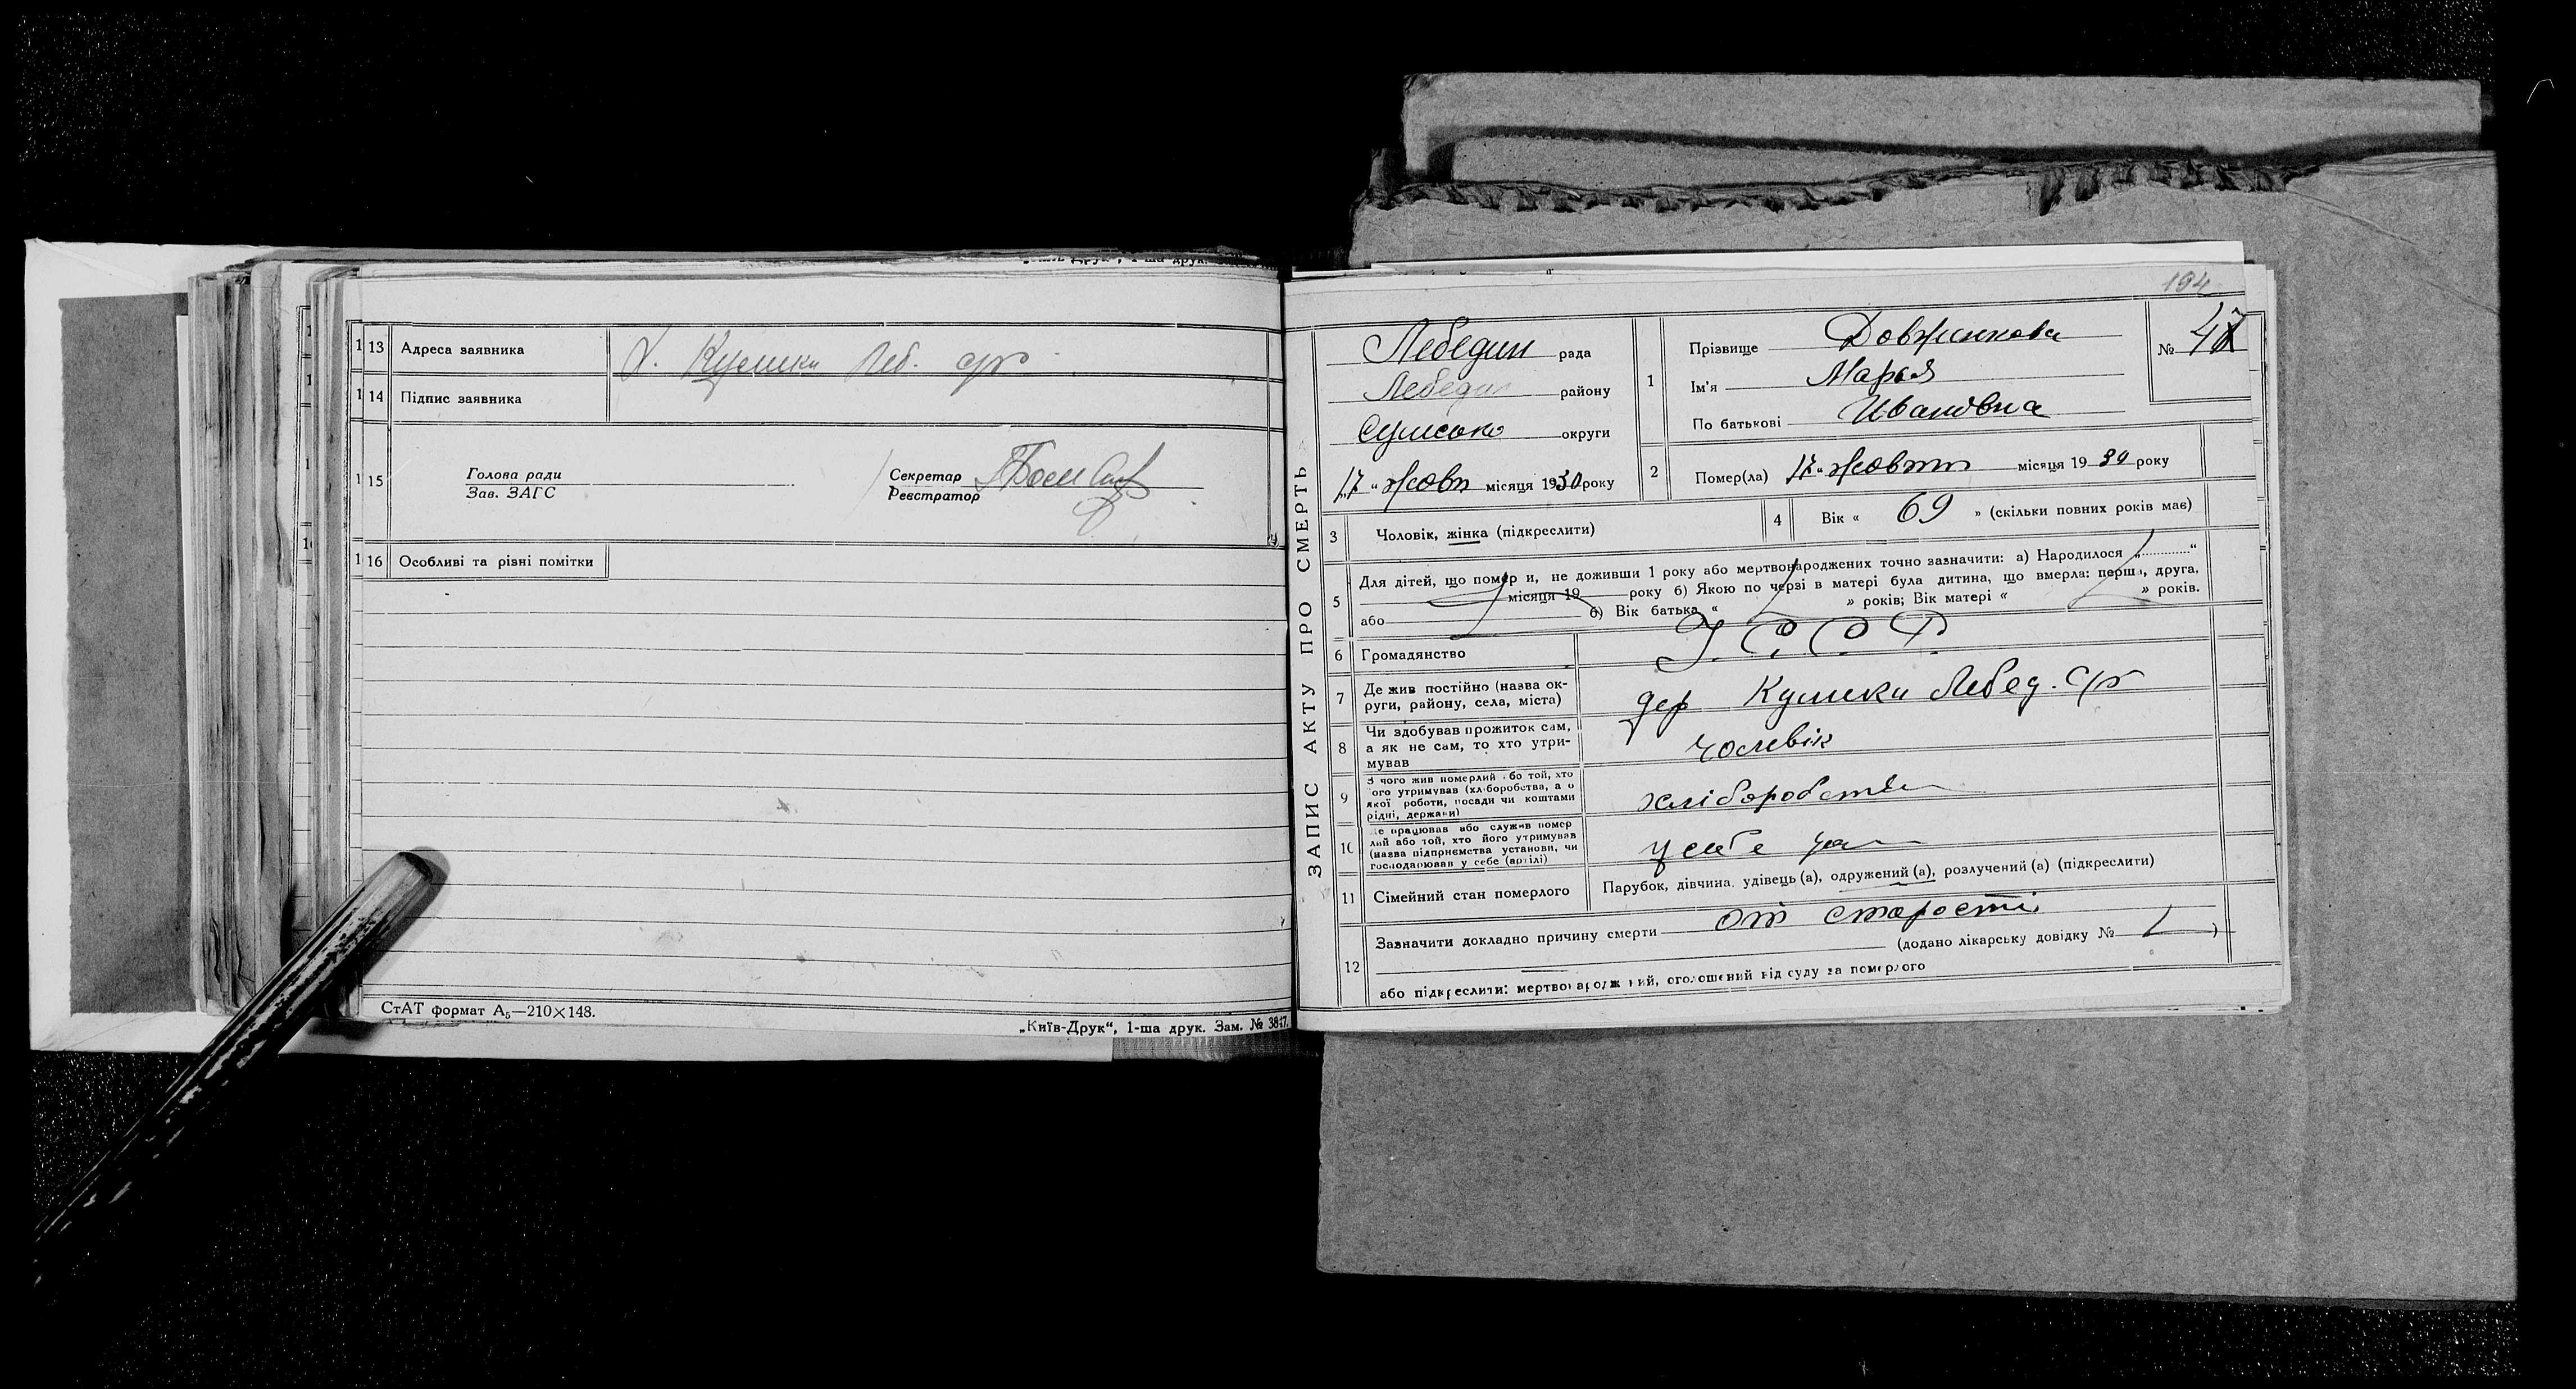 13 Адреса заявника
Х. Кулики Леб. с/р
14 Підпис заявника
15
Голова ради
Зав. ЗАГС
Секретар
Реєстратор
16 Особливі та різні помітки
СтАТ формат А₅—210×148.
„Київ-Друк“, 1-ша друк. Зам. № 3847.
194
ЗАПИС АКТУ ПРО СМЕРТЬ
Лебедин рада
Лебедин району
Сумсько округи
„17“ Жовт місяця 1930 року
1 Прізвище Довженкова
Ім'я Марья
По батькові Ивановна
№ 47
2 Помер(ла) 17 „ Жовтн місяця 1930 року
3 Чоловік, жінка (підкреслити)
4 Вік « 69 » (скільки повних років має)
5 Для дітей, що помер и, не доживши 1 року або мертвонароджених точно зазначити: а) Народилося „ “
місяця 19 року б) Якою по черзі в матері була дитина, що вмерла: перша, друга,
або в) Вік батька « » років; Вік матері « » років.
6 Громадянство У. С. С. Р.
7 Де жив постійно (назва ок-
руги, району, села, міста)
дер Кулики Лебед. с/р
8 Чи здобував прожиток сам,
а як не сам, то хто утри-
мував
чоловік
9 З чого жив померлий або той, хто
його утримував (хліборобства, а о
якої роботи, посади чи коштами
рідні, держави)
хліборобства
10 Де працював або служив помер
лий або той, хто його утримував
(назва підприємства установи, чи
господарював у себе (артілі)
у себе
11 Сімейний стан померлого
Парубок, дівчина, удівець (а), одружений (а), розлучений (а) (підкреслити)
12 Зазначити докладно причину смерти от старости
(додано лікарську довідку № )
або підкреслити: мертвонароджений, оголошений від суду за померлого